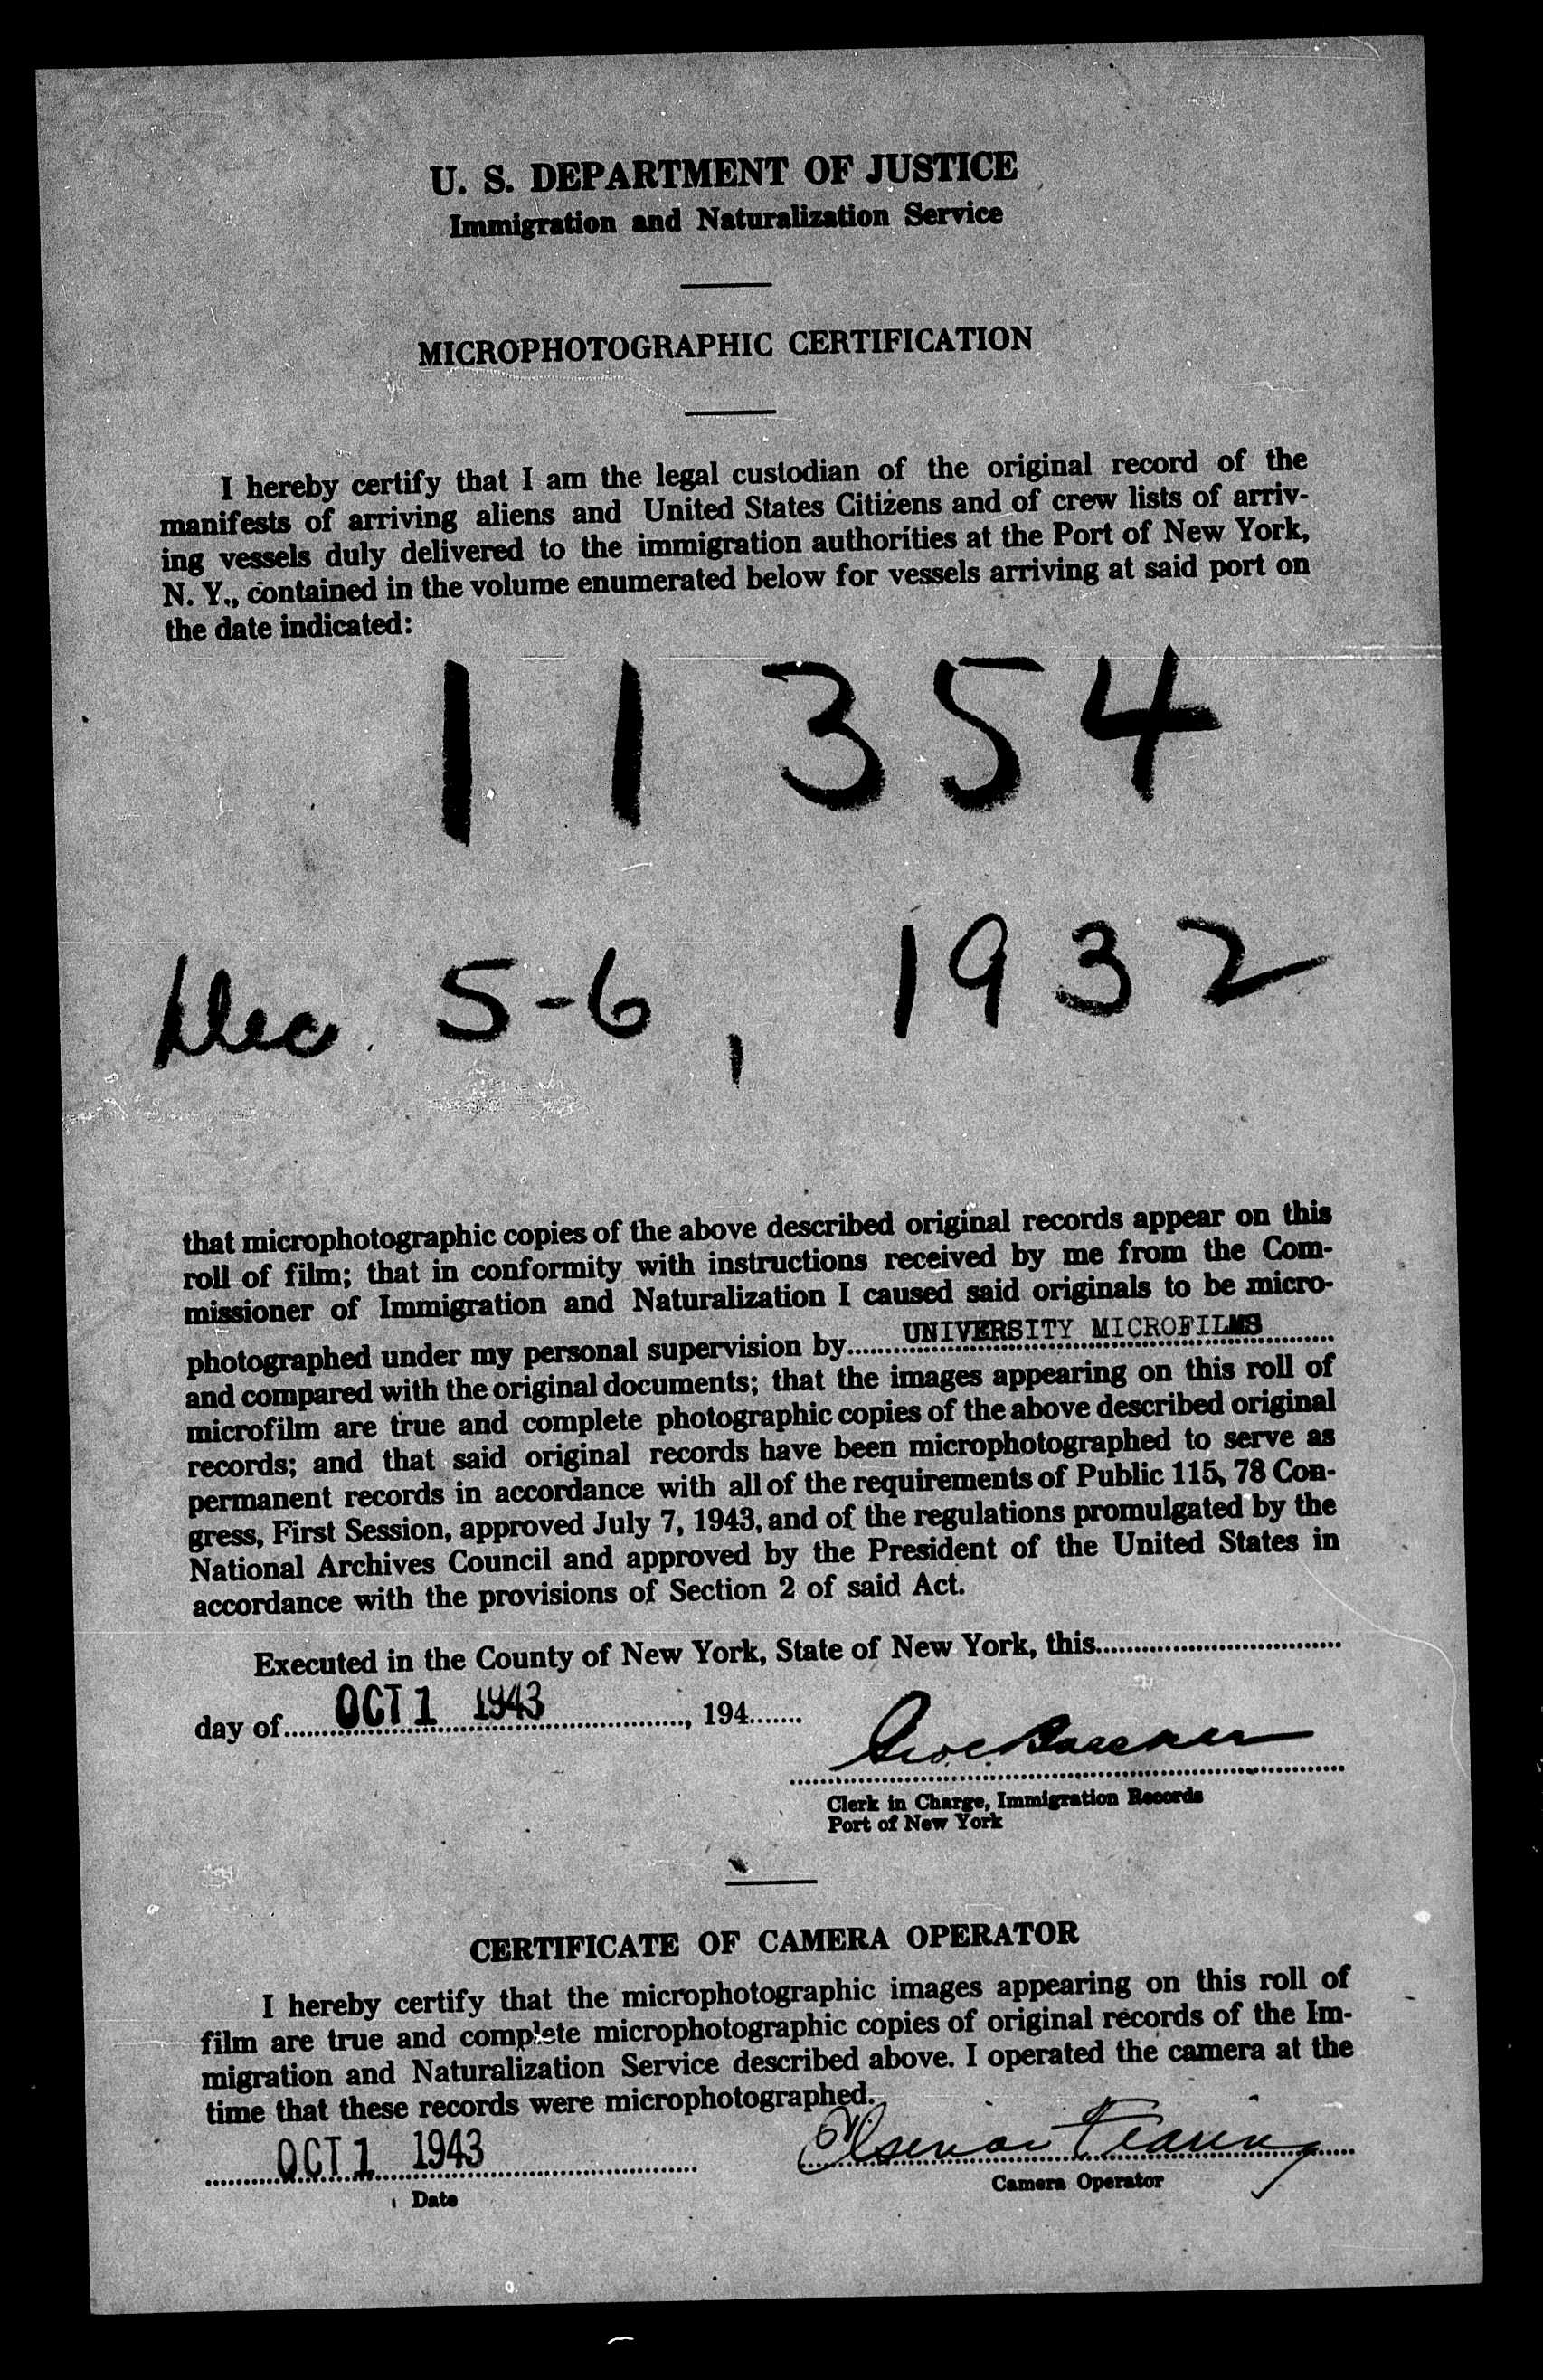 U. S. DEPARTMENT OF JUSTICE
Immigration and Naturalization Service
MICROPHOTOGRAPHIC CERTIFICATION
I hereby certify that I am the legal custodian of the original record of the
manifests of arriving aliens and United States Citizens and of crew lists of arriv-
ing vessels duly delivered to the immigration authorities at the Port of New York,
N. Y., contained in the volume enumerated below for vessels arriving at said port on
the date indicated:
11354
Dec. 5-6, 1932
that microphotographic copies of the above described original records appear on this
roll of film; that in conformity with instructions received by me from the Com-
missioner of Immigration and Naturalization I caused said originals to be micro-
photographed under my personal supervision by UNIVERSITY MICROFILMS
and compared with the original documents; that the images appearing on this roll of
microfilm are true and complete photographic copies of the above described original
records; and that said original records have been microphotographed to serve as
permanent records in accordance with all of the requirements of Public 115, 78 Con-
gress, First Session, approved July 7, 1943, and of the regulations promulgated by the
National Archives Council and approved by the President of the United States in
accordance with the provisions of Section 2 of said Act.
Executed in the County of New York, State of New York, this
day of OCT 1 1943, 194
Clerk in Charge, Immigration Records
Port of New York
CERTIFICATE OF CAMERA OPERATOR
I hereby certify that the microphotographic images appearing on this roll of
film are true and complete microphotographic copies of original records of the Im-
migration and Naturalization Service described above. I operated the camera at the
time that these records were microphotographed.
OCT 1 1943
Date
Camera Operator